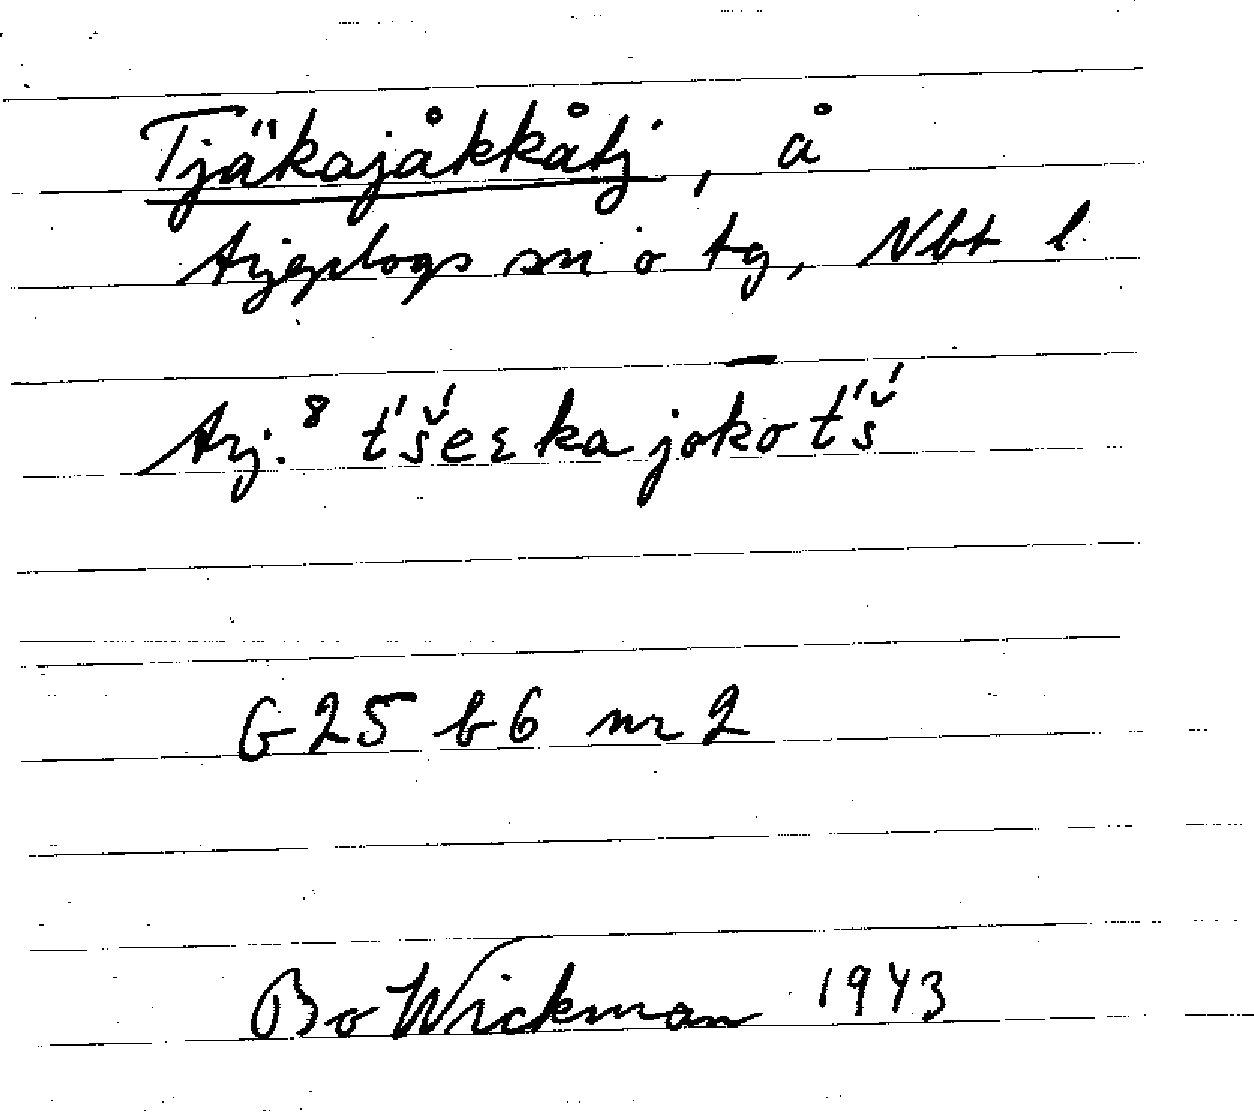 Tjäkajåkkåtj, å
Arjeplogs sn o tg, Nbt l
Arj.⁸ t́š́eεkajokō̄t́š́
G25 b6 nr 2
Bo Wickman 1943